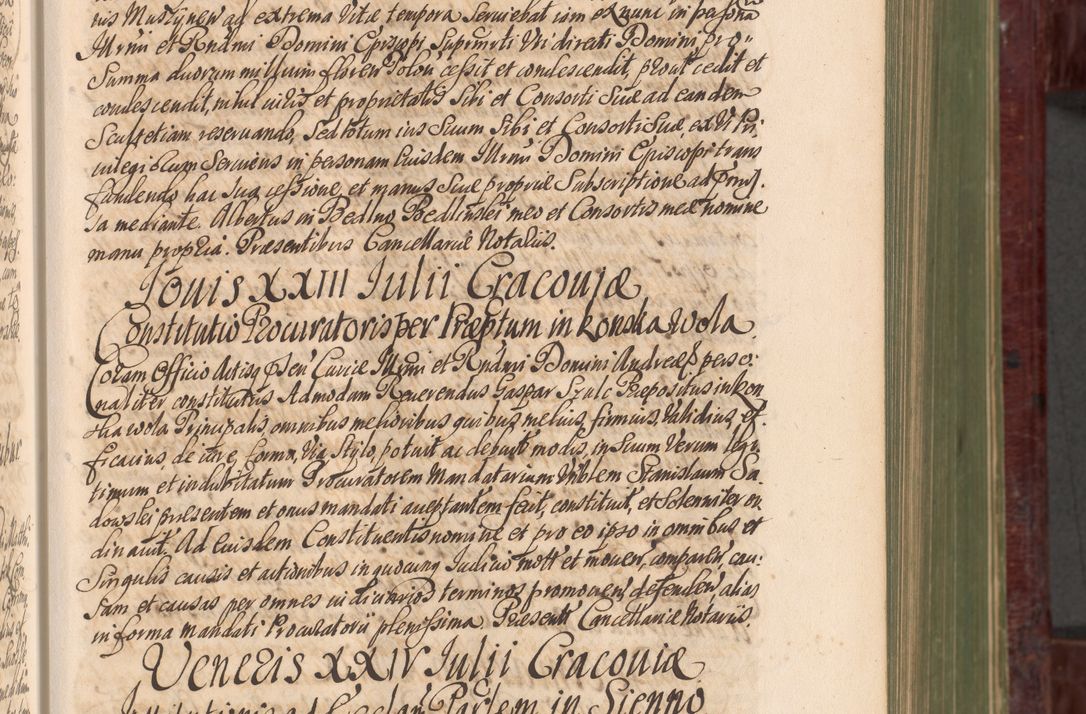 nis Muszynen ad extrema Vitæ tempora Serviebat iam ex nunc in personã
Illrmi et Rndmi Domini Episcopi Supramti Vti directi Domini pro
Summa duorum millium floren Polon cessit et condescendit, prout cedit et
condescendit, nihil iuris et proprietatis Sibi et Consorti Suæ ad eandem
Scultetiam reservando, Sed totum ius Suum Sibi et Consorti Suæ, ex Vi Pri
Serviens in personam Eiusdem Illrmi Domini Episcopi trans
fundendo hac Sua cessione, et manus Suæ propriæ Subscriptione
mediante. Albertus in Bedlno Bedlinski meo et Consortis meæ nomine
manu propria. Præsentibus Cancellariæ Notariis.
Jouis XXIII Iulii Cracouiæ
Constitutio Procuratoris per Præptum in Konska wola
Coram Officio Actisq Pñ Curiæ Illrmi et Rndmi Domini Andreæ perso
naliter constitutus Admodum Reuerendus Gaspar Szulc Præpositus in Kon
ska wola Principalis, omnibus melioribus quibus melius, firmius, Validius, ef
ficacius, de iure, forma, Via, Stylo, potuit ac debuit modis, in Suum Verum legi
timum et indubitatum Procuratorem Mandatarium Nñblem Stanislaum Sa
dowski præsentem et onus mandati aceptantem fecit, constituit, et Solenniter or
dinauit. Ad Eiusdem Constituentis nomine et pro eo ipso in omnibus et
Singulis causis et actionibus in quocunq Iudicio mott et mouen, comparen, cau
sam et causas per omnes iudiciarios terminos promouen, defenden, alias
in forma mandati Procuratorii plenissima. Præsentt Cancellariæ Notariis.
Veneris XXIV Iulii Cracouiæ
in Sienno